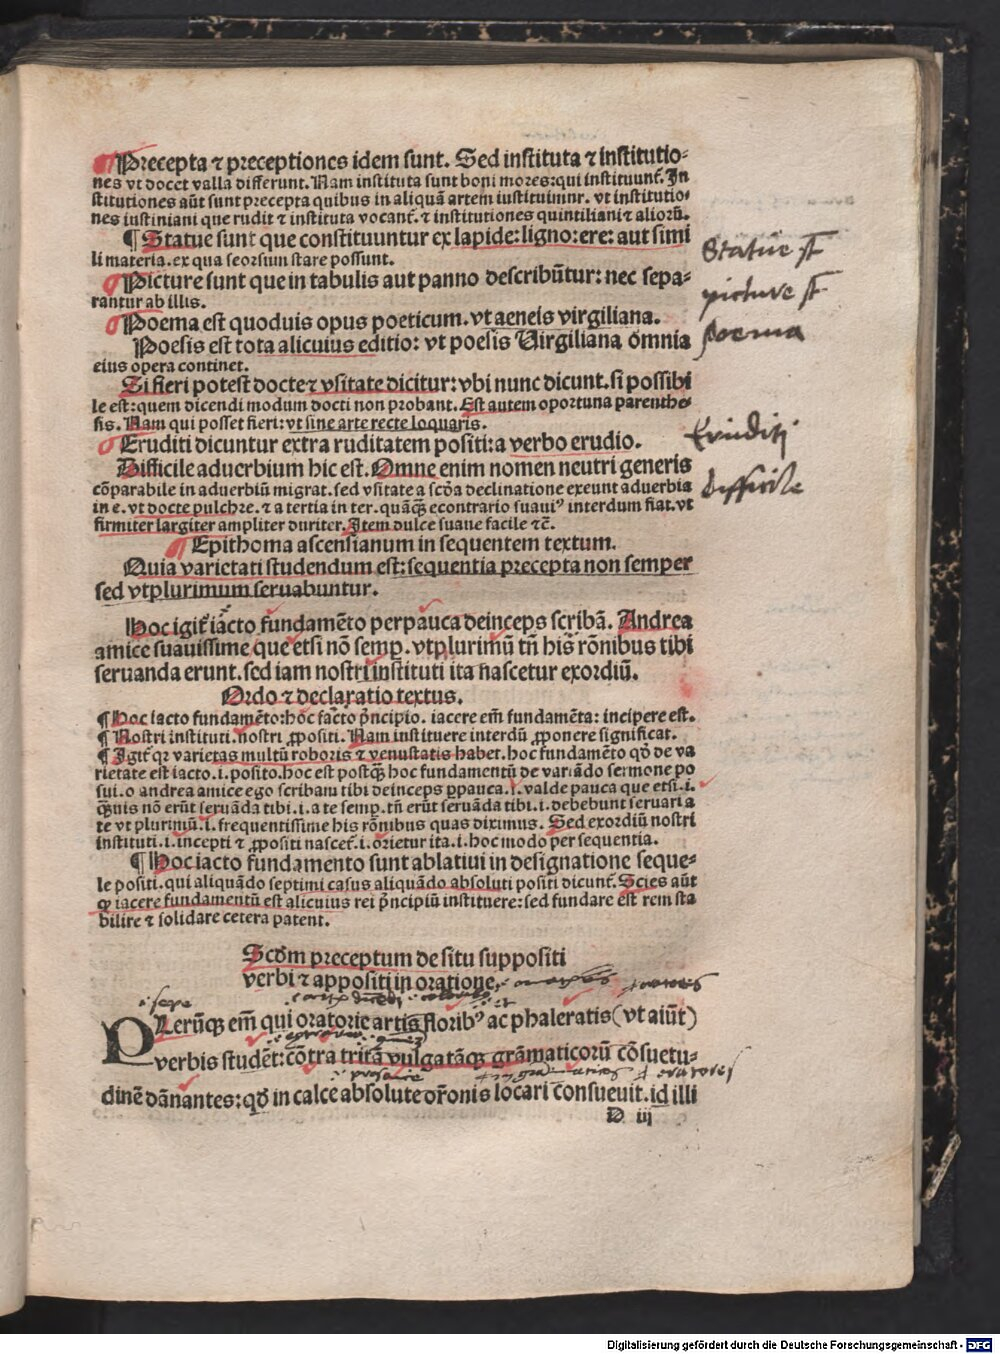 ¶Precepta ⁊ preceptiones idem sunt. Sed instituta ⁊ institutio⸗
nes vt docet valla differunt. Nam instituta sunt boni mores: qui instituunt̄. In
stitutiones aūt sunt precepta quibus in aliquā artem instituimnr. vt institutio⸗
nes iustiniani que rudit ⁊ instituta vocant̄. ⁊ institutiones quintiliani ⁊ aliorū.
¶Statue sunt que constituuntur ex lapide: ligno: ere: aut simi
li materia. ex qua seorsum stare possunt.
Picture sunt que in tabulis aut panno describūtur: nec sepa⸗
rantur ab illis.
Poema est quoduis opus poeticum. vt aeneis virgiliana.
Poesis est tota alicuius editio: vt poesis Virgiliana omnia
eius opera continet.
Si fieri potest docte ⁊ vsitate dicitur: vbi nunc dicunt. si possibi
le est: quem dicendi modum docti non probant. Est autem oportuna parenthe⸗
sis. Nam qui posset fieri: vt sine arte recte loquaris.
Eruditi dicuntur extra ruditatem positi: a verbo erudio.
Difficile aduerbium hic est. Omne enim nomen neutri generis
cōparabile in aduerbiū migrat. sed vsitate a scd̄a declinatione exeunt aduerbia
in e. vt docte pulchre. ⁊ a tertia in ter. quāqȝ econtrario suauiꝰ interdum fiat. vt
firmiter largiter ampliter duriter. Item dulce suaue facile ⁊c̄.
¶Epithoma ascensianum in sequentem textum.
Quia varietati studendum est: sequentia precepta non semper
sed vtplurimum seruabuntur.
Hoc igit̄ iacto fundamēto perpauca deinceps scribā. Andrea
amice suauissime que etsi nō semꝑ. vtplurimū tn̄ his rōnibus tibi
seruanda erunt. sed iam nostri instituti ita nascetur exordiū.
Ordo ⁊ declaratio textus.
¶Hoc iacto fundamēto: hoc fac̄to p̄ncipio. iacere em̄ fundamēta: incipere est.
¶Nostri instituti. nostri ꝓpositi. Nam instituere interdū ꝓponere significat.
¶Igit̄ qr varietas multū roboris ⁊ venustatis habet. hoc fundamēto qd̄ de va
rietate est iacto. i. posito. hoc est postqȝ hoc fundamentū de variādo sermone po
sui. o andrea amice ego scribam tibi deinceps ꝑpauca. i. valde pauca que etsi. i.
qȝuis nō erūt seruāda tibi. i. a te semꝑ. tn̄ erūt seruāda tibi. i. debebunt seruari a
te vt plurimū. i. frequentissime his rōnibus quas diximus. Sed exordiū nostri
instituti. i. incepti ⁊ ꝓpositi nascet̄. i. orietur ita. i. hoc modo per sequentia.
¶Hoc iacto fundamento sunt ablatiui in designatione seque⸗
le positi. qui aliquādo septimi casus aliquādo absoluti positi dicunt̄. Scies aūt
ꝙ iacere fundamentū est alicuius rei p̄ncipiū instituere: sed fundare est rem sta
bilire ⁊ solidare cetera patent.
Statue st̄
picture st̄
poema
Eruditi
difficile
Scd̄m preceptum de situ suppositi
verbi ⁊ appositi in oratione.
.i. sepe
PLerūqȝ em̄ qui oratorie artis floribꝰ ac phaleratis (vt aiūt)
verbis studēt: cōtra tritā vulgatāqȝ grāmaticorū cōsuetu⸗
dinē dānantes: qd̄ in calce absolute orōnis locari consueuit. id illi
D iij
Digitalisierung gefördert durch die Deutsche Forschungsgemeinschaft - DFG